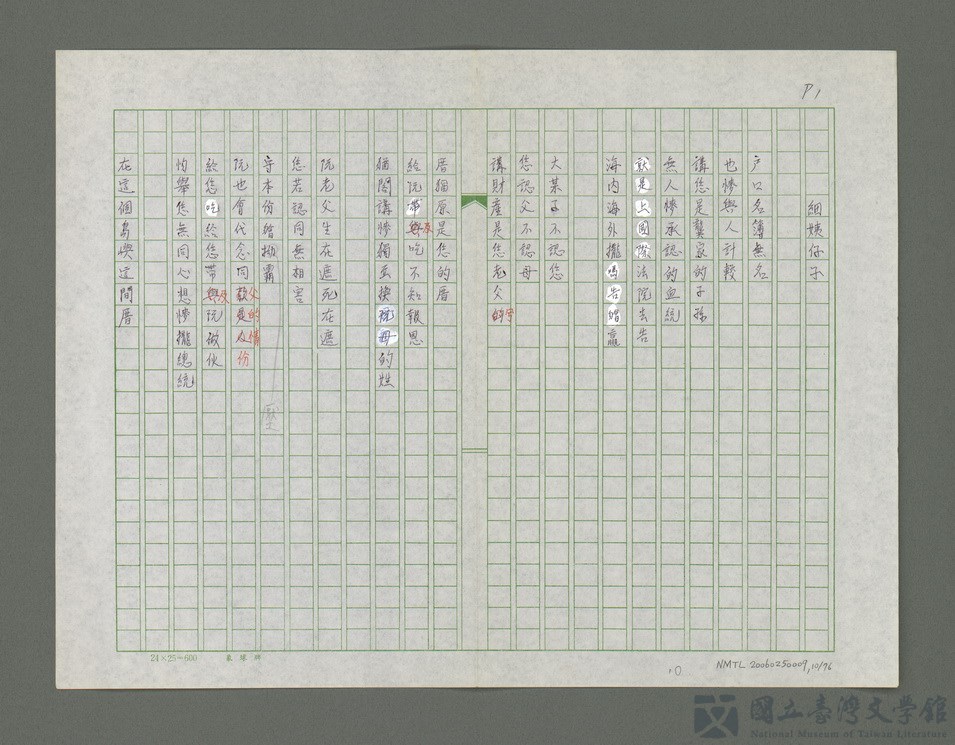 P1
細姨仔子
戶口名簿無名
也慘與人計較
講您是龔家的子孫
無人慘承認的血統
就是上國際法院去告
海內海外攏嗎告皓贏
大某子不認您
您認父不認母
講財產是您老父的
厝猶原是您的厝
給阮帶與及吃不知報恩
猶閣講慘去換 的姓
阮老父生在遮死在遮
您若認同無相害
守本份皓拗霸
阮也會代念同 父的情份
給您吃給您帶與及阮做伙
怕舉您無同心想慘攏總統
在這個島與這間厝
壓
24×25=600
NMTL 20060250009, 10/76
國立臺灣文學館
National Museum of Taiwan Literature